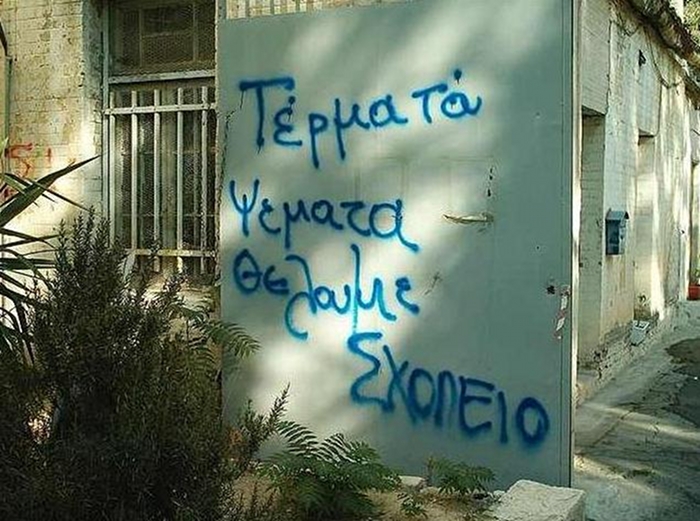 Τέρμα τά
ψεματα
Θελουμε
ΣΧΟΛΕΙΟ